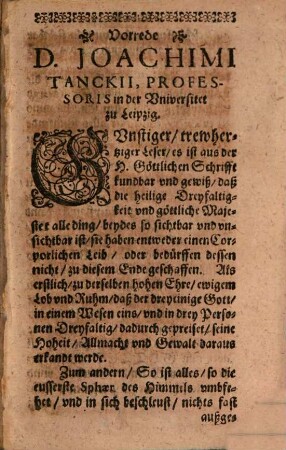 Vorrede
D. JOACHIMI
TANCKII, PROFES-
SORIS in der Vniversitet
zu Leipzig.
GVnstiger/ trewher-
tziger Leser/ es ist aus der
H. Göttlichen Schrifft
kundbar vnd gewiß/ daß
die heilige Dreyfaltig-
keit vnd göttliche Maje-
stet alle ding/ beydes so sichtbar vnd vn-
sichtbar ist/ sie haben entweder einen Cor-
porlichen Leib / oder bedürffen dessen
nicht / zu diesem Ende geschaffen. Als
erstlich/ zu derselben hohen Ehre/ ewigem
Lob vnd Ruhm/ daß der dreyeinige Gott/
in einem Wesen eins/ vnd in drey Perso-
nen Dreyfaltig/ dadurch gepreiset/ seine
Hoheit / Allmacht vnd Gewalt daraus
erkandt werde.
Zum andern/ So ist alles/ so die
eusserste Sphær des Himmels vmbfe-
het/ vnd in sich beschleust/ nichts fast
außges